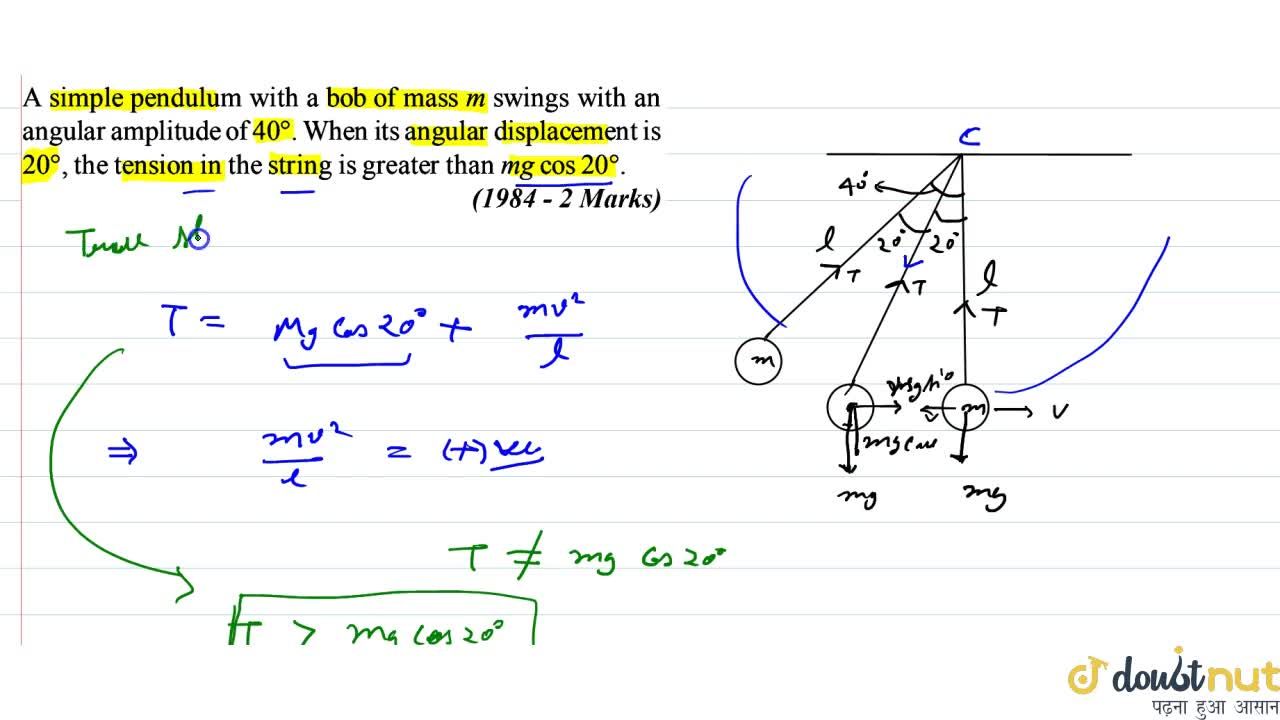 A simple pendulum with a bob of mass m swings with an
angular amplitude of 40°. When its angular displacement is
20°, the tension in the string is greater than mg cos 20°.
(1984 - 2 Marks)
T = Mg Cos 20° + mv²/l
⇒ mv²/l = (+)
T ≠ mg Cos 20°
T > mg Cos 20°
C
40°
20° 20°
l
T
T
l
T
m
m
v
v
mg
mg
doubtnut
पढ़ना हुआ आसान